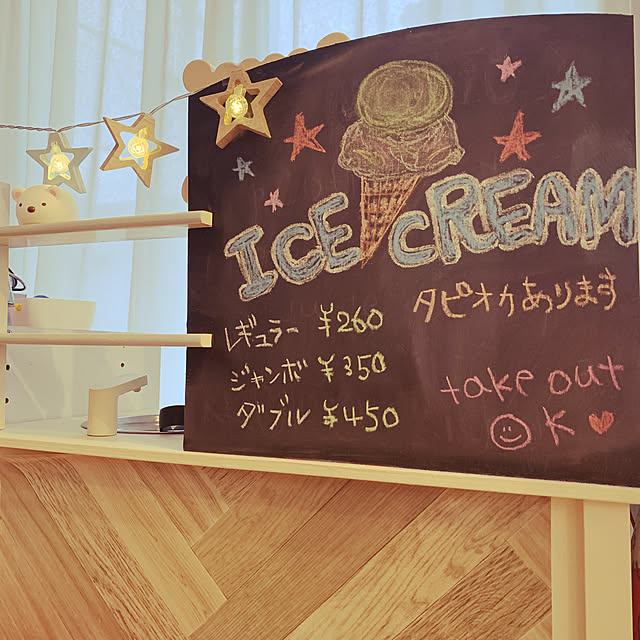 ICE CREAM
レギュラー ¥260
ジャンボ ¥350
ダブル ¥450
タピオカあります
take out
OK